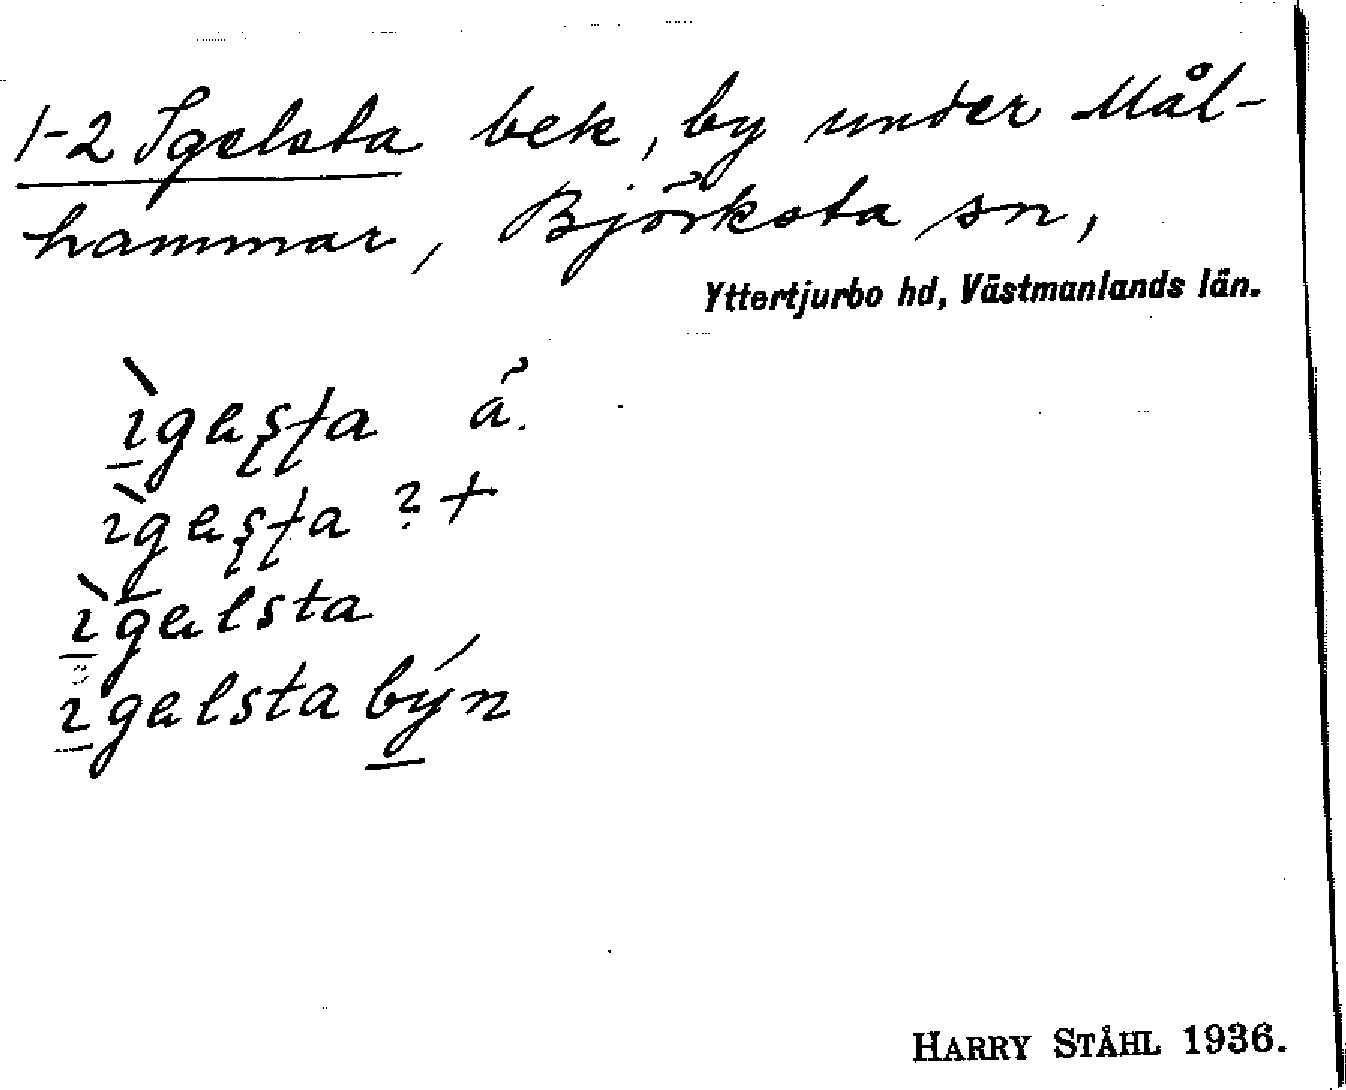 1-2 Igelsta bek, by under Mål-
hammar, Björksta sn,
Yttertjurbo hd, Västmanlands län.
ı̀gəʂʈa ä.
ı̀gəʂʈa ? +
ı̀gəlsta
ıgəlstabýn
HARRY STÅHL 1936.